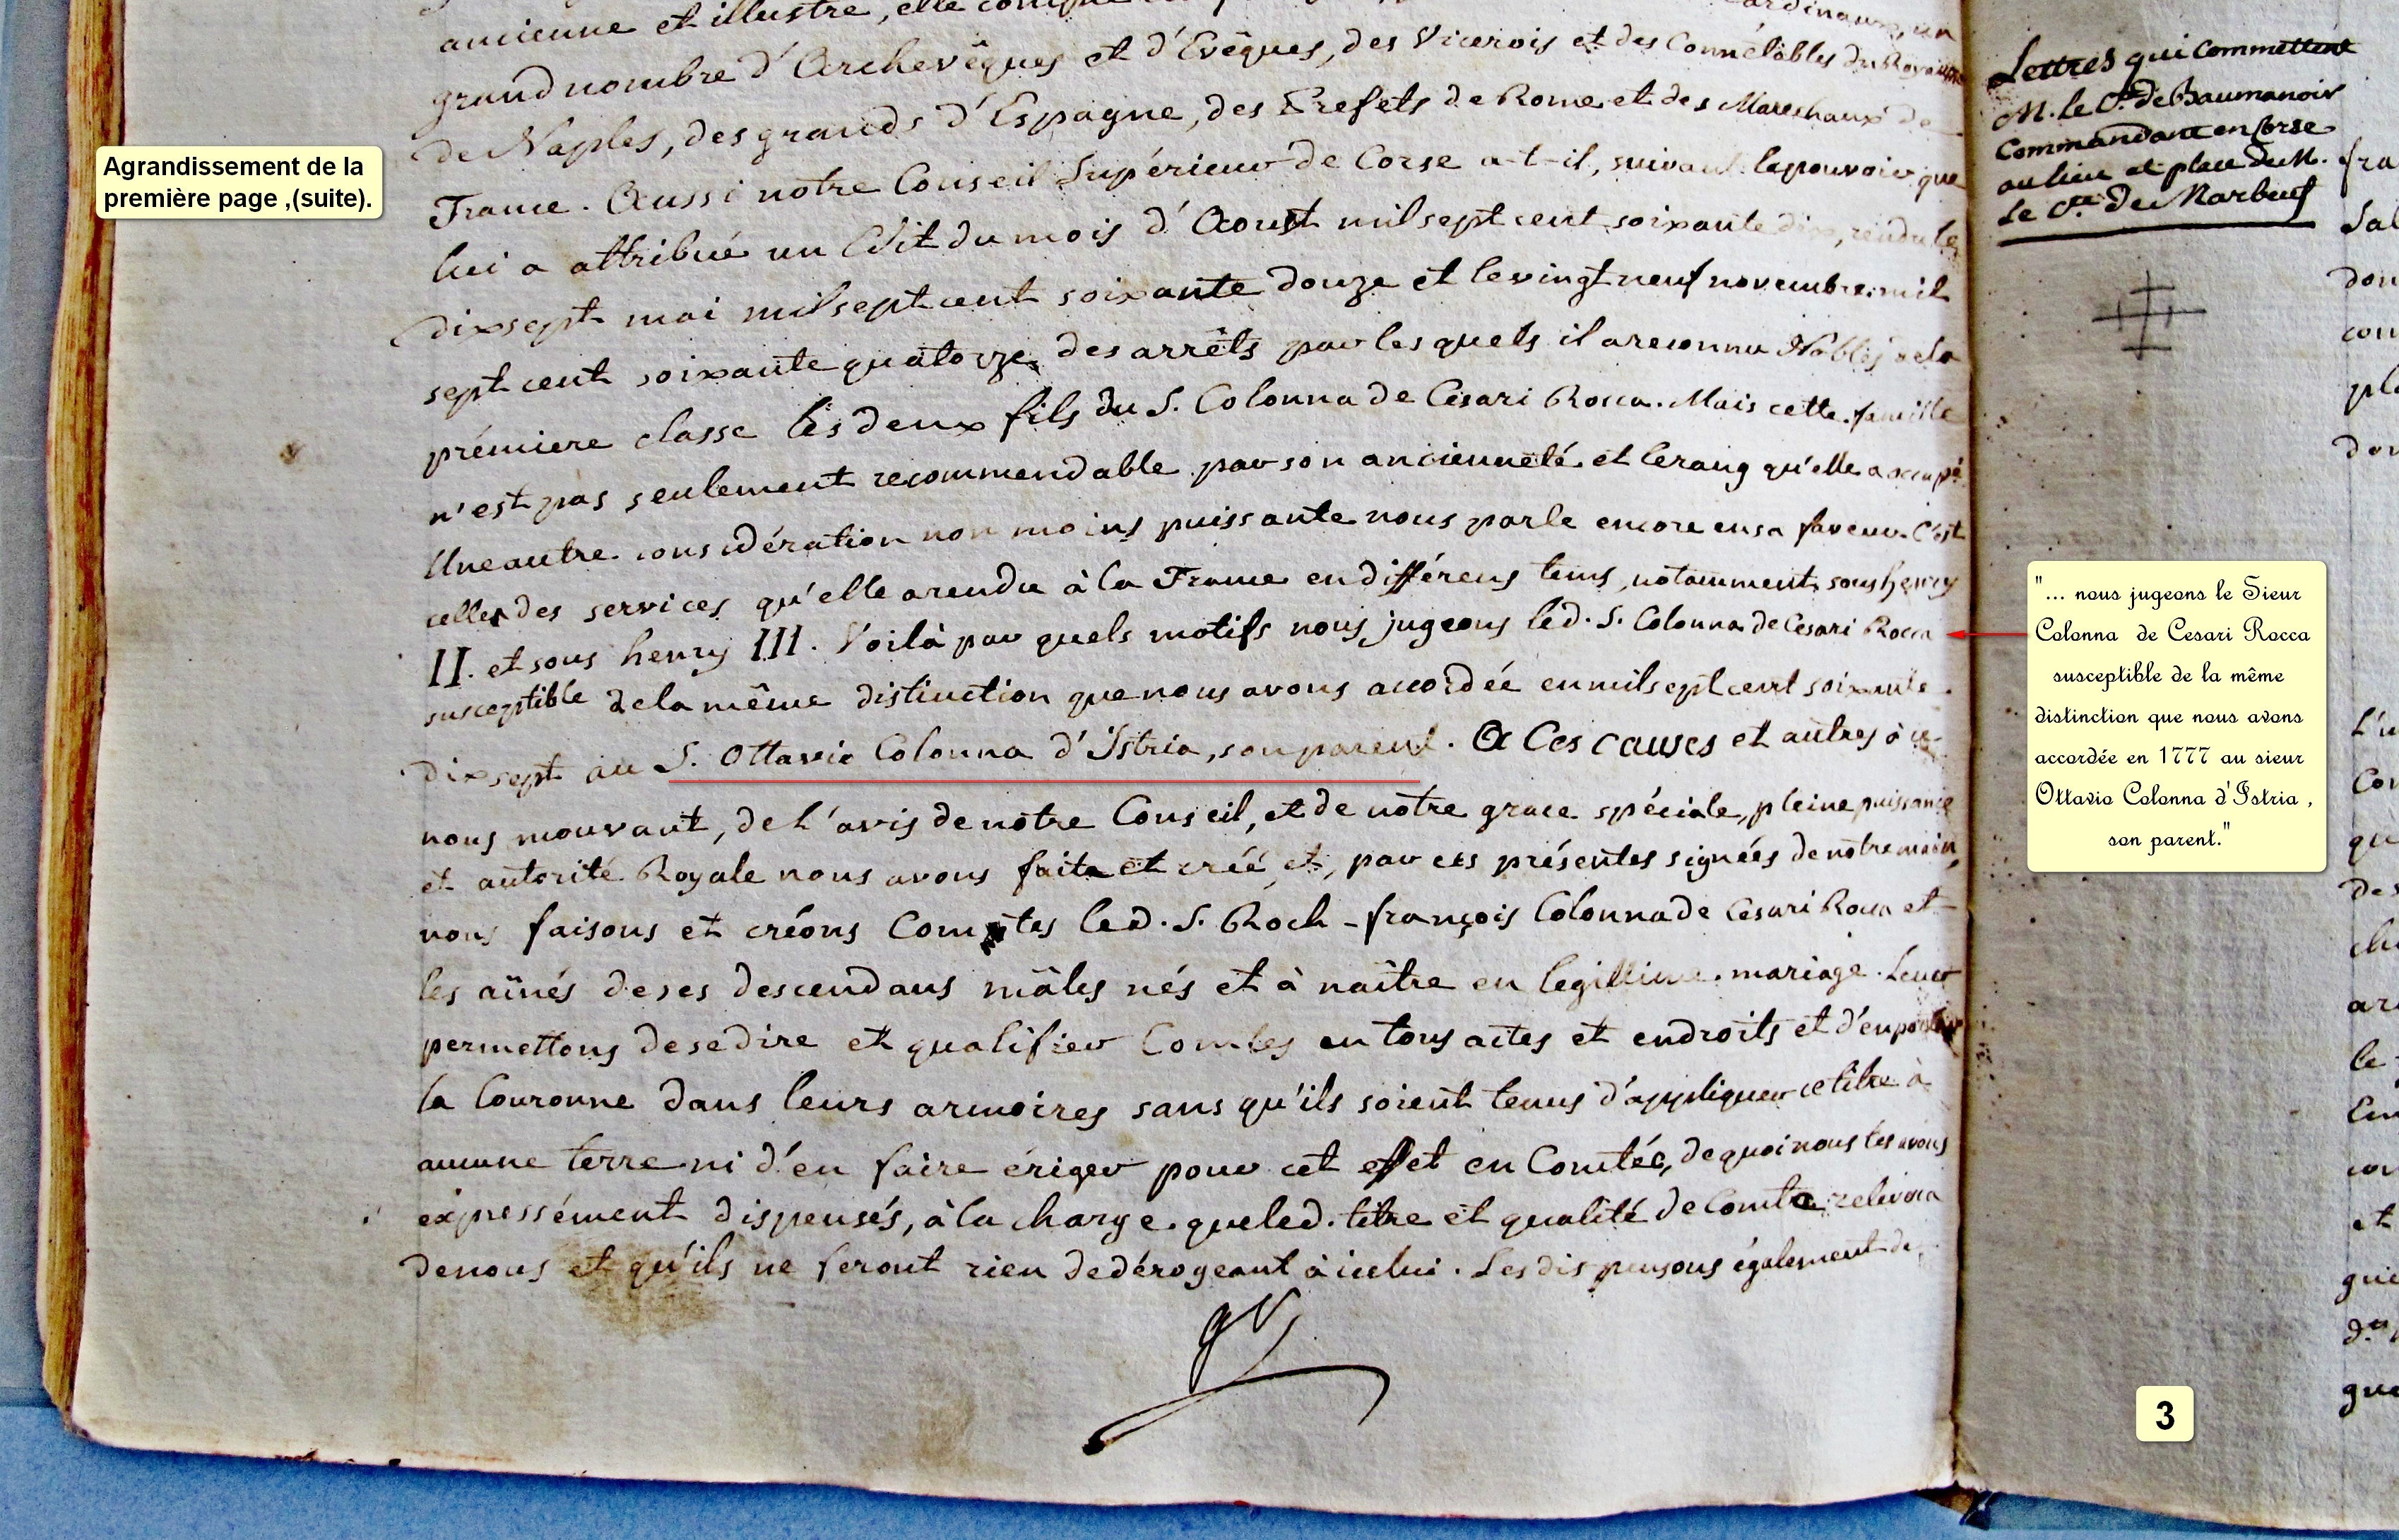 Agrandissement de la
première page ,(suite).
ancienne et illustre, elle
grand nombre d'Archevêques et d'Evêques, des Vicerois et des Connétables du Royaume
de Naples, des grands d'Espagne, des Préfets de Rome et des Marechaux de
France. Aussi notre Conseil Supérieur de Corse a-t-il, suivant le pouvoir que
lui a attribué un Edit du mois d'Aoust mil sept cent soixante dix, rendu le
dix sept mai mil sept cent soixante douze et le vingt neuf novembre mil
sept cent soixante quatorze des arrêts par lesquels il a reconnu Nobles de la
prémiere classe les deux fils du S. Colonna de Césari Rocca. Mais cette famille
n'est pas seulement recommendable par son ancienneté et le rang qu'elle a occupé.
Une autre considération non moins puissante nous parle encore en sa faveur. C'est
celle des services qu'elle a rendu à la France en différens tems, notamment sous henry
II. et sous henry III. Voilà par quels motifs nous jugeons led. S. Colonna de Cesari Rocca
susceptible de la même distinction que nous avons accordée en mil sept cent soixante
dix sept au S. Ottavio Colonna d'Istria, son parent. A Ces causes et autres à ce
nous mouvant, de l'avis de notre Conseil, et de notre grace spéciale, pleine puissance
et autorité Royale nous avons fait et créé, et, par ces présentes signées de notre main,
nous faisons et créons Comtes led. S. Roch-françois Colonna de Cesari Rocca et
les aînés de ses descendans mâles nés et à naître en legitime mariage. Leur
permettons de se dire et qualifier Comtes en tous actes et endroits et d'en porter
la Couronne dans leurs armoires sans qu'ils soient tenus d'appliquer ce titre à
aucune terre ni d'en faire ériger pour cet effet en Comté, de quoi nous les avons
expressément dispensés, à la charge que led. titre et qualité de Comte relevera
de nous et qu'ils ne feront rien de dérogeant à icelui. Les dispensons également de
Lettres qui commettent
M. le Cte de Baumanoir
Commandant en Corse
au lieu et place de M.
Le Cte de Marbeuf
"... nous jugeons le Sieur
Colonna de Cesari Rocca
susceptible de la même
distinction que nous avons
accordée en 1777 au sieur
Ottavio Colonna d'Istria ,
son parent."
3